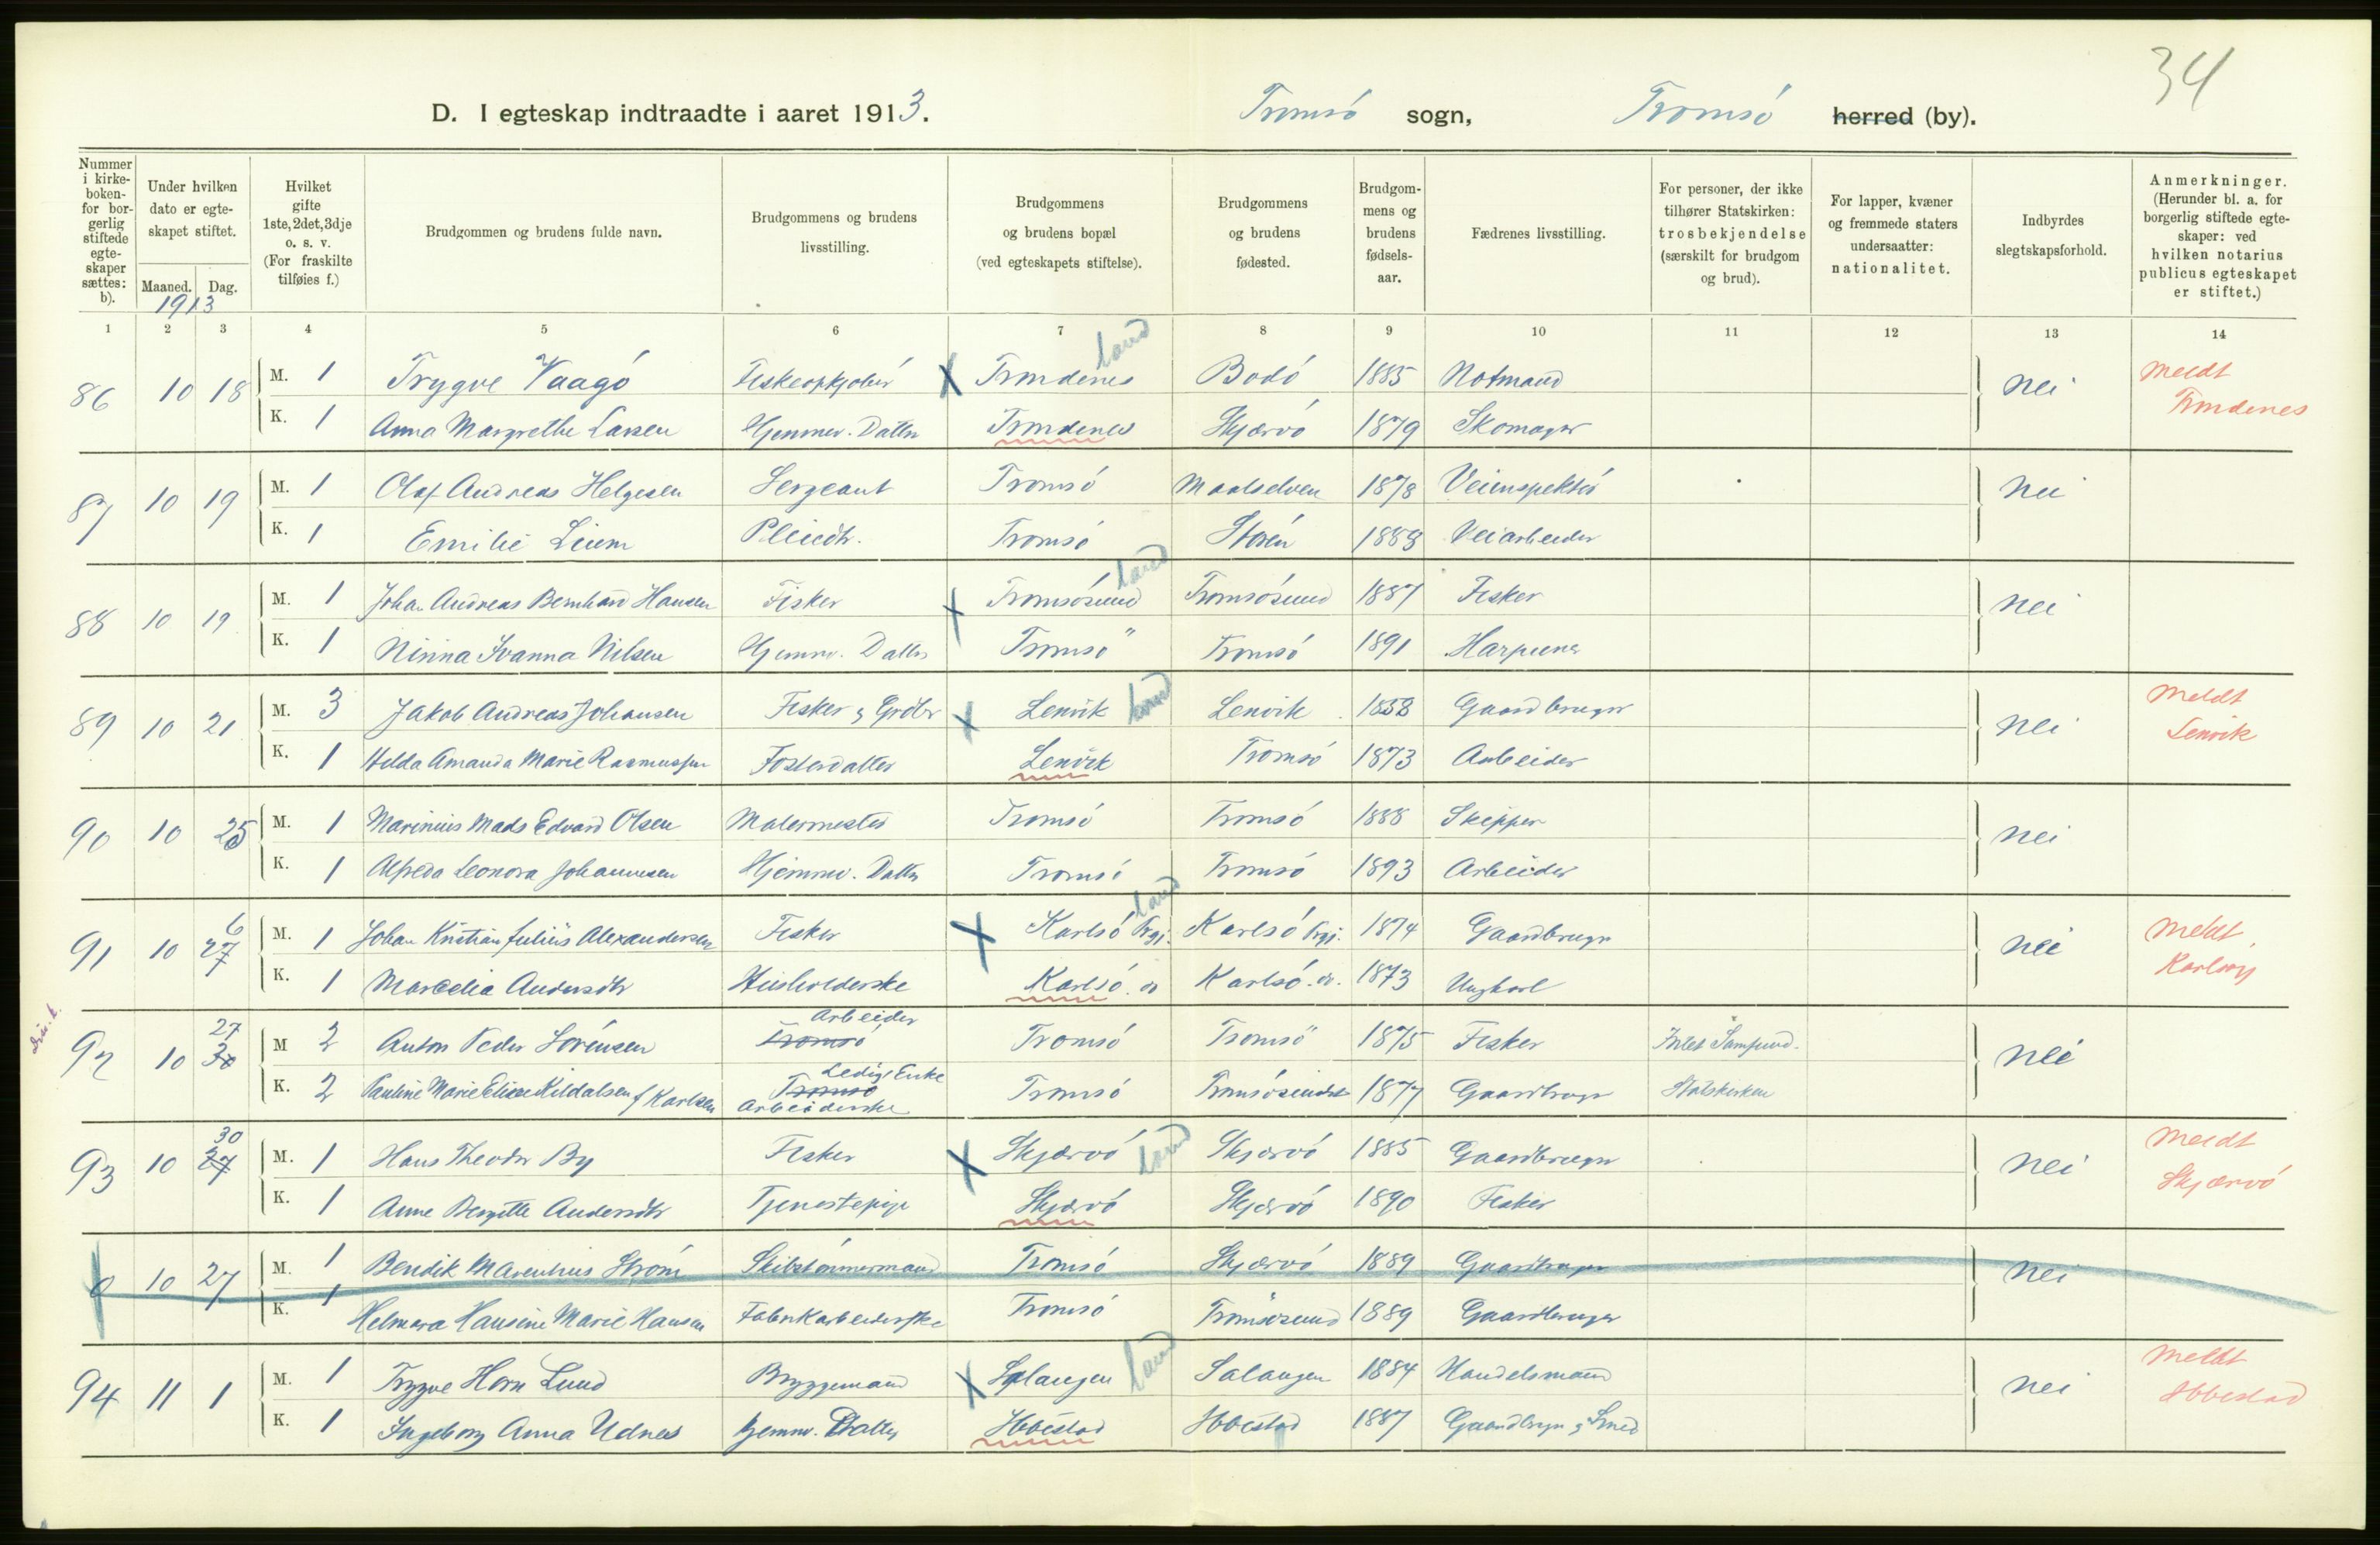 34
D. I egteskap indtraadte i aaret 1913. Tromsö sogn, Tromsö herred (by).
Nummer i kirke-boken- for bor-gerlig stiftede egte-skaper sættes: b).
Under hvilken dato er egte-skapet stiftet.
Maaned. Dag.
1913
Hvilket gifte 1ste, 2det, 3dje o. s. v. (For fraskilte tilføies f.)
Brudgommen og brudens fulde navn.
Brudgommens og brudens livsstilling.
Brudgommens og brudens bopæl (ved egteskapets stiftelse).
Brudgommens og brudens fødested.
Brudgom-mens og brudens fødsels-aar.
Fædrenes livsstilling.
For personer, der ikke tilhører Statskirken: trosbekjendelse (særskilt for brudgom og brud).
For lapper, kvæner og fremmede staters undersaatter: nationalitet.
Indbyrdes slegtskapsforhold.
Anmerkninger. (Herunder bl. a. for borgerlig stiftede egte-skaper: ved hvilken notarius publicus egteskapet er stiftet.)
1 2 3 4 5 6 7 8 9 10 11 12 13 14
land
86 10 18 M. 1 Trygve Vaagö Fiskeopkjöber X Trondenes Bodö 1885 Notmand nei meldt Trondenes
K. 1 Anna Margrethe Larsen Hjemmev. Datter Trondenes Skjærvö 1879 Skomager
87 10 19 M. 1 Olaf Andreas Helgesen Sergeant Tromsö Maalselven 1878 Veiinspektör nei
K. 1 Emilie Liem Pleiedtr. Tromsö Stören 1888 Veiarbeider
land
88 10 19 M. 1 Johan Andreas Bernhard Hansen Fisker X Tromsösund Tromsösund 1887 Fisker nei
K. 1 Ninna Ivanna Nilsen Hjemmv. Datter Tromsö Tromsö 1891 Harpuner
89 10 21 M. 3 Jakob Andreas Johansen Fisker & Grdbr X Lenvik land Lenvik 1858 Gaardbruger nei Meldt Lenvik
K. 1 Hilda Amanda Marie Rasmussen Fosterdatter Lenvik Tromsö 1873 Arbeider
90 10 25 M. 1 Marinius Mads Edvard Olsen Malermester Tromsö Tromsö 1888 Skipper nei
K. 1 Alfreda Leonora Johannesen Hjemmev. Datter Tromsö Tromsö 1893 Arbeider
land
91 10 27 6 M. 1 Johan Kristian Julius Alexandersen Fisker X Karlsö Prgj. Karlsö Prgj. 1874 Gaardbruger nei Meldt Karlsöy
K. 1 Marcelia Andersdtr Husholderske Karlsö do Karlsö do. 1873 Ungkarl
92 10 30 27 M 2 Anton Peder Sörensen Tromsö Arbeider Tromsö Tromsö 1875 Fisker Indet Samfund. nei
K. 2 Pauline Marie Elise Kildalsen f Karlsen Tromsö Ledig Enke Arbeiderske Tromsö Tromsösundet 1877 Gaardbruger Statskirken
93 10 27 30 M. 1 Hans Theodor By Fisker X Skjærvö land Skjærvö 1885 Gaardbruger nei Meldt Skjærvö
K. 1 Anne Bergitte Andersdtr Tjenestepige Skjærvö Skjærvö 1890 Fisker
0 10 27 M. 1 Bendik Marenius Ström Skibstömmermand Tromsö Skjærvö 1889 Gaardbruger nei
K. 1 Helmara Hansine Marie Hansen Fabrikarbeiderske Tromsö Tromsösund 1889 Gaardbruger
94 11 1 M. 1 Trygve Horn Lund Bryggemand X Salangen land Salangen 1884 Handelsmand nei Meldt Ibbestad
K. 1 Ingeborg Anna Udnes hjemmv. Datter Ibbestad Ibbestad 1887 Gaardbrugr & Smed